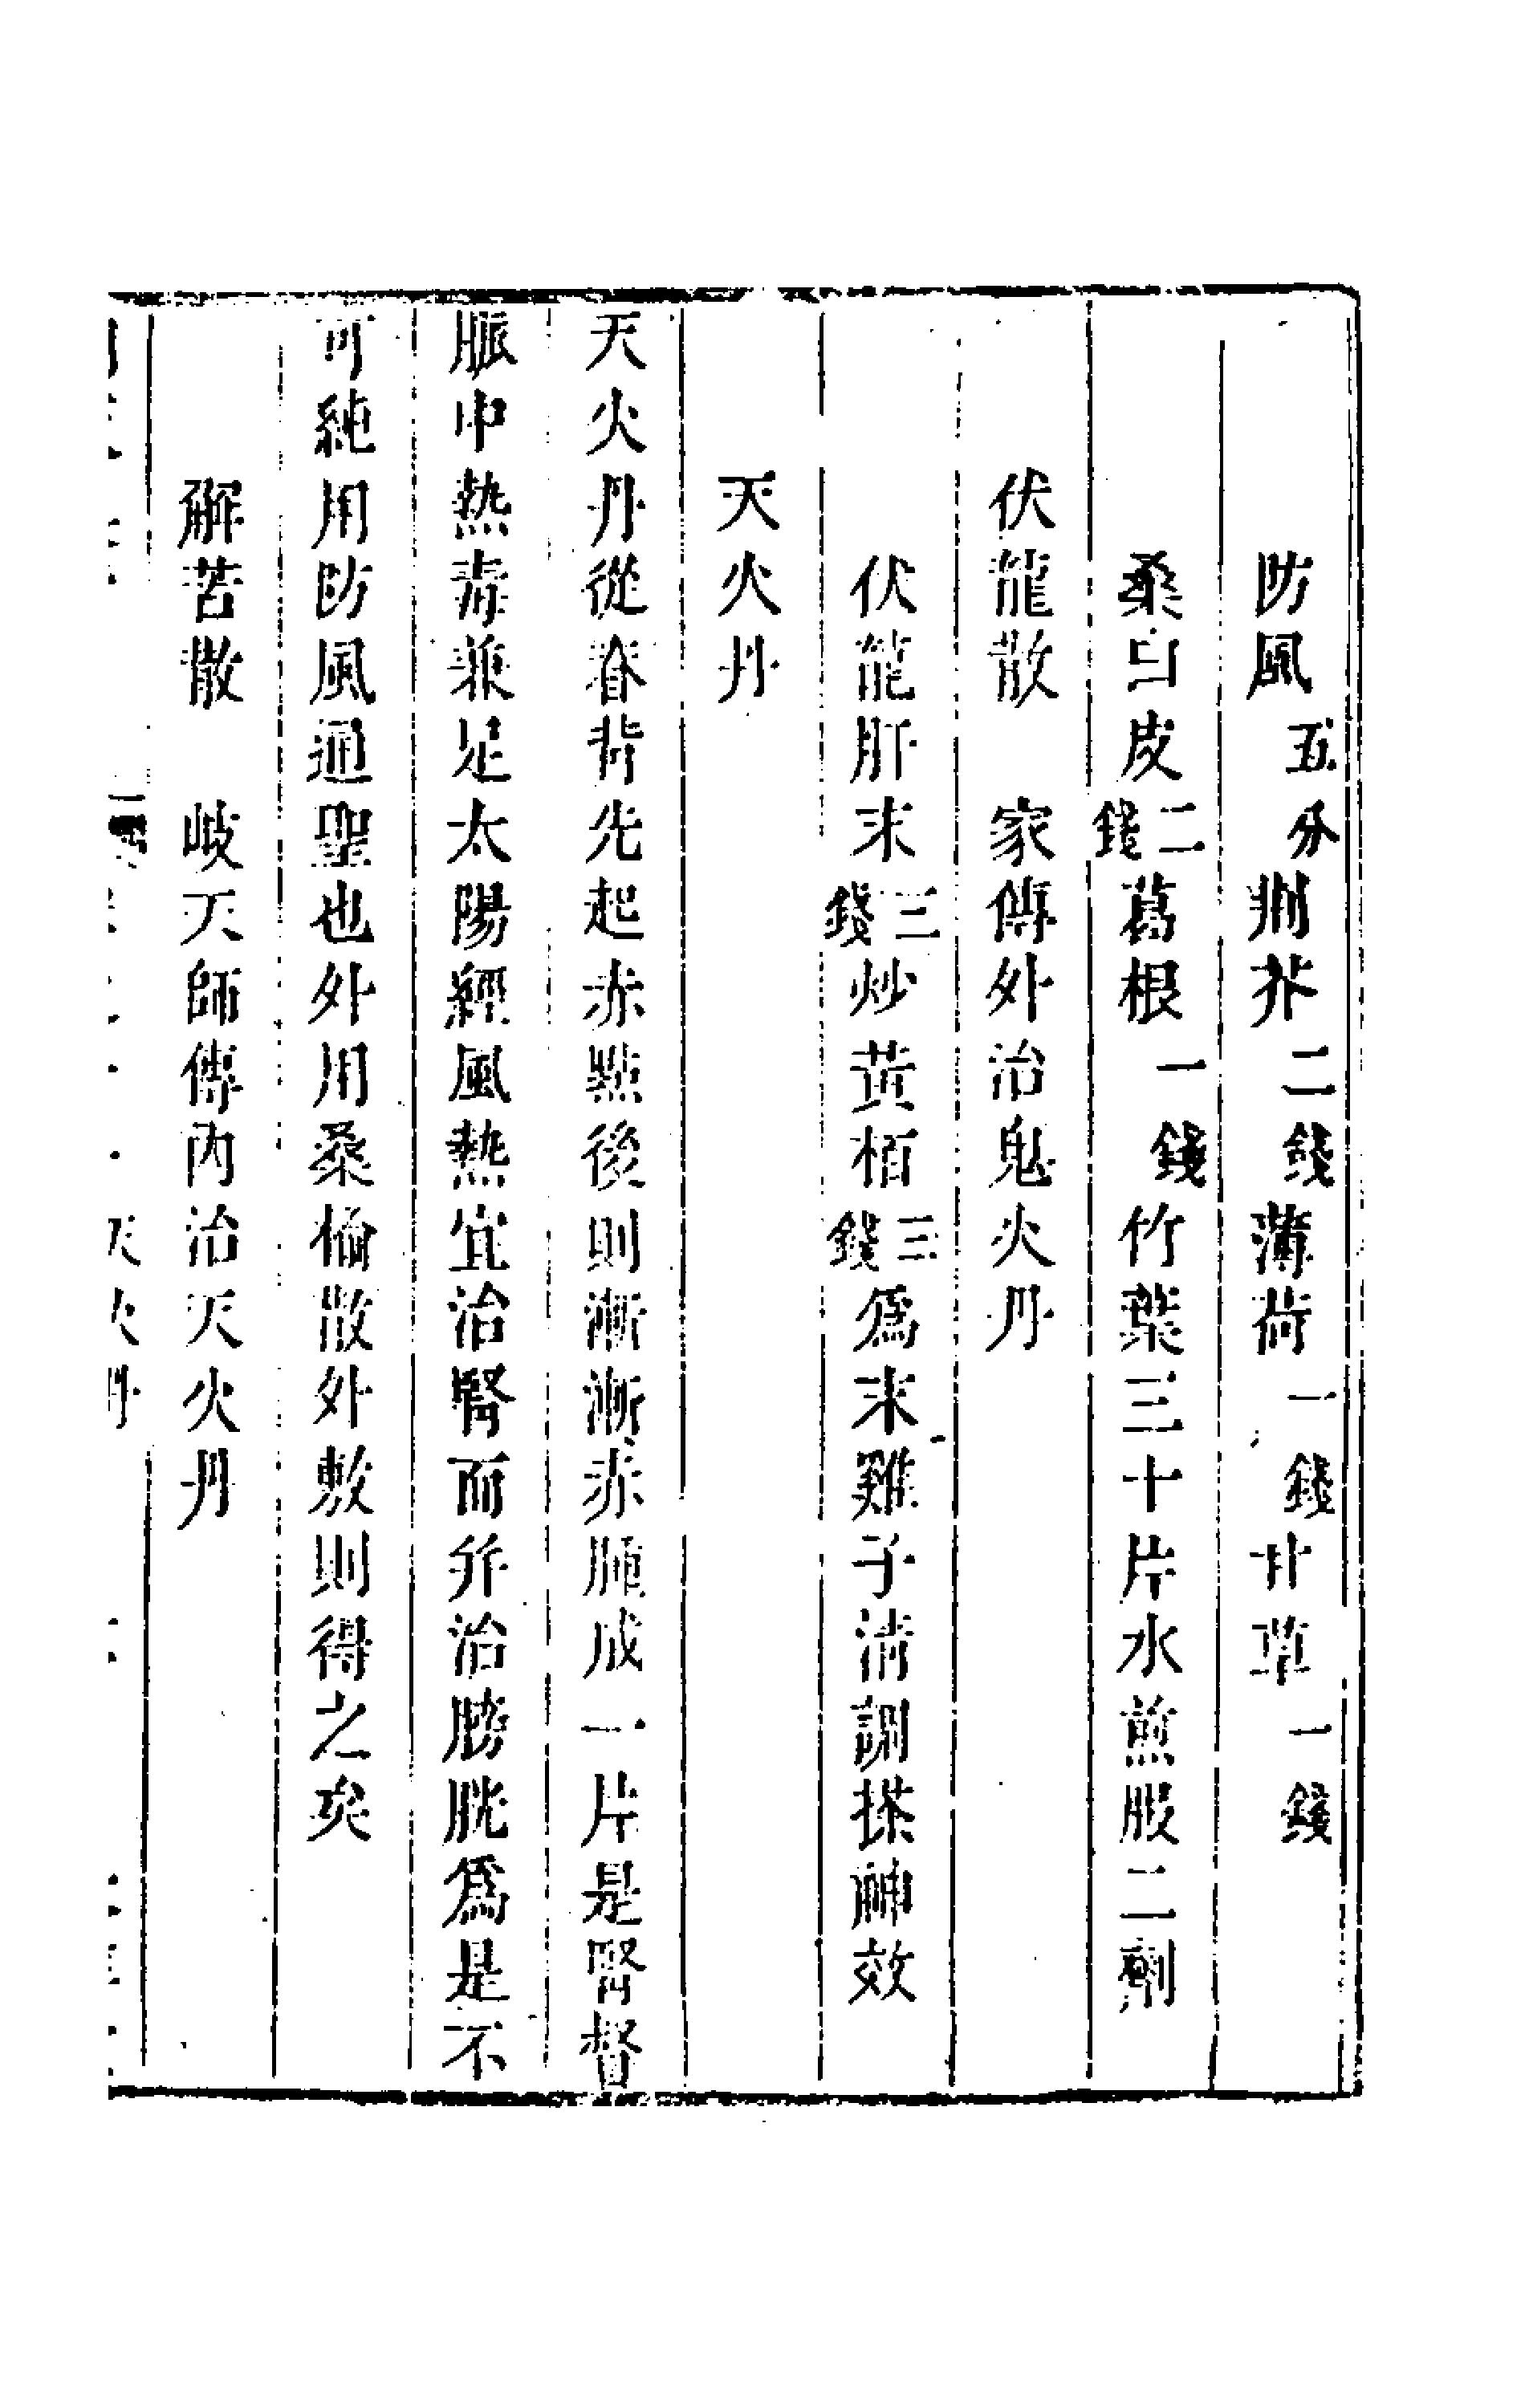 防風五分荆芥二錢薄荷一錢甘草一錢
桑白皮二錢葛根一錢竹葉三十片水煎服二劑
伏龍散　家傳外治鬼火丹
伏龍肝末三錢炒黃栢三錢為末雞子清調搽神效
天火丹
天火丹從脊背先起赤點後則漸漸赤腫成一片是腎督
脈中熱毒兼足太陽經風熱宜治腎而并治膀胱爲是不
可純用防風通聖也外用桑榆散外敷則得之矣
解苦散　岐天師傳內治天火丹
天火丹